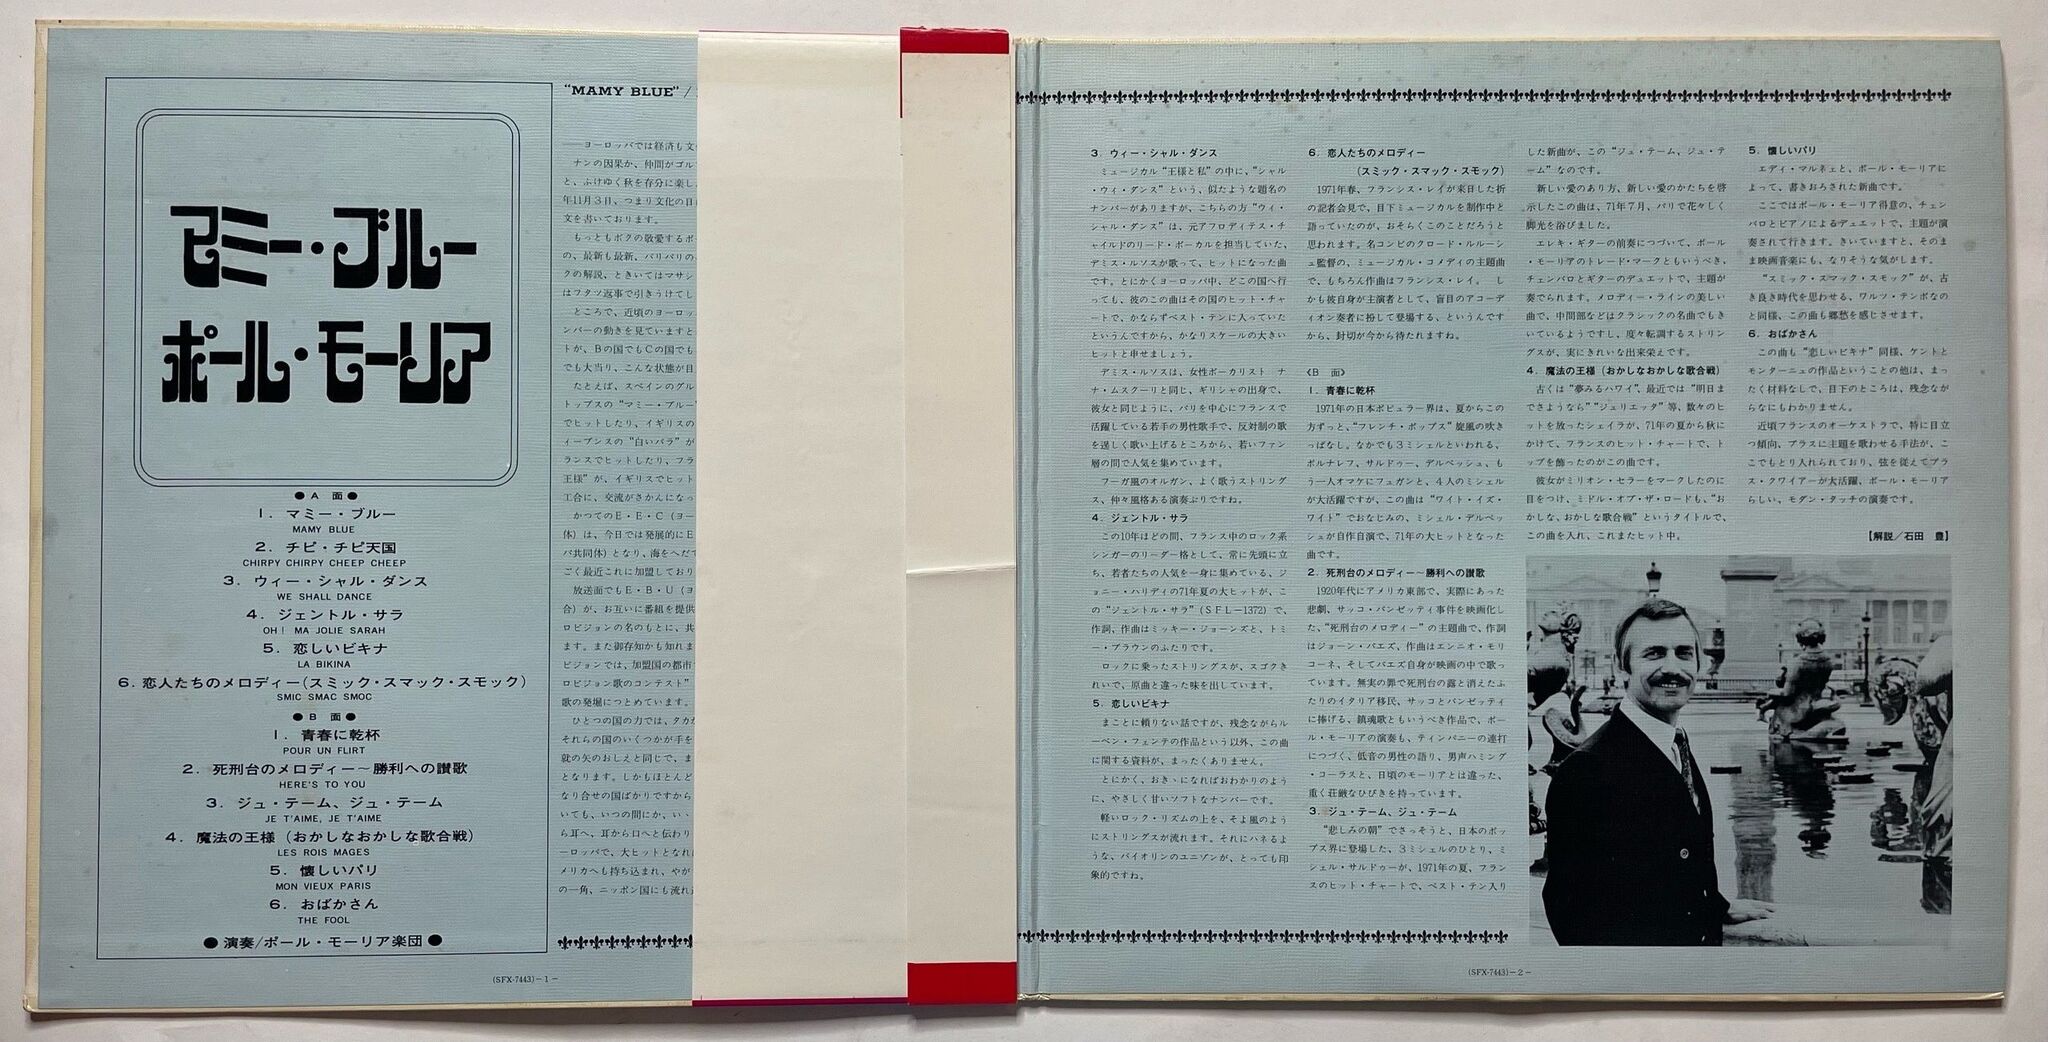 マミー・ブルー
ポール・モーリア
●A 面●
1. マミー・ブルー
MAMY BLUE
2. チピ・チピ天国
CHIRPY CHIRPY CHEEP CHEEP
3. ウィー・シャル・ダンス
WE SHALL DANCE
4. ジェントル・サラ
OH! MA JOLIE SARAH
5. 恋しいビキナ
LA BIKINA
6. 恋人たちのメロディー(スミック・スマック・スモック)
SMIC SMAC SMOC
●B 面●
1. 青春に乾杯
POUR UN FLIRT
2. 死刑台のメロディー〜勝利への讃歌
HERE'S TO YOU
3. ジュ・テーム、ジュ・テーム
JE T'AIME, JE T'AIME
4. 魔法の王様(おかしなおかしな歌合戦)
LES ROIS MAGES
5. 懐しいパリ
MON VIEUX PARIS
6. おばかさん
THE FOOL
●演奏/ポール・モーリア楽団●
"MAMY BLUE" /
——ヨーロッパでは経済も文
ナンの因果か、仲間がゴル
と、ふけゆく秋を存分に楽し
年11月3日、つまり文化の日
文を書いております。
もっともボクの敬愛するポ
の、最新も最新、バリバリの
クの解説、ときいてはマサシ
はフタツ返事で引きうけてし
ところで、近頃のヨーロッ
ンバーの動きを見ていますと
トが、Bの国でもCの国でも
でも大当り、こんな状態が目
たとえば、スペインのグル
トップスの"マミー・ブルー"
でヒットしたり、イギリスの
ィーブンスの"白いバラ"が
ランスでヒットしたり、フラ
王様"が、イギリスでヒット
工合に、交流がさかんになっ
かつてのE・E・C(ヨー
体)は、今日では発展的にE
パ共同体)となり、海をへだて
ごく最近これに加盟しており
放送面でもE・B・U(ヨ
合)が、お互いに番組を提供
ロビジョンの名のもとに、共
ます。また御存知かも知れま
ビジョンでは、加盟国の都市
ロビジョン歌のコンテスト"
歌の発掘につとめています。
ひとつの国の力では、タカが
それらの国のいくつかが手を
就の矢のおしえと同じで、ま
となります。しかもほとんど
なり合せの国ばかりですから
いても、いつの間にか、い・
ら耳へ、耳から口へと伝わり
ーロッパで、大ヒットとなれ
メリカへも持ち込まれ、やが
の一角、ニッポン国にも流れ
(SFX-7443)-1-
3. ウィー・シャル・ダンス
ミュージカル"王様と私"の中に、"シャル
・ウィ・ダンス"という、似たような題名の
ナンバーがありますが、こちらの方"ウィ・
シャル・ダンス"は、元アフロディテス・チ
ャイルドのリード・ボーカルを担当していた、
デミス・ルソスが歌って、ヒットになった曲
です。とにかくヨーロッパ中、どこの国へ行
っても、彼のこの曲はその国のヒット・チャ
ートで、かならずベスト・テンに入っていた
というんですから、かなりスケールの大きい
ヒットと申せましょう。
デミス・ルソスは、女性ボーカリスト ナ
ナ・ムスクーリと同じ、ギリシャの出身で、
彼女と同じように、パリを中心にフランスで
活躍している若手の男性歌手で、反対制の歌
を逞しく歌い上げるところから、若いファン
層の間で人気を集めています。
フーガ風のオルガン、よく歌うストリング
ス、仲々風格ある演奏ぶりですね。
4. ジェントル・サラ
この10年ほどの間、フランス中のロック系
シンガーのリーダー格として、常に先頭に立
ち、若者たちの人気を一身に集めている、ジ
ョニー・ハリディの71年夏の大ヒットが、こ
の"ジェントル・サラ"(SFL-1372)で、
作詞、作曲はミッキー・ジョーンズと、トミ
ー・ブラウンのふたりです。
ロックに乗ったストリングスが、スゴクき
れいで、原曲と違った味を出しています。
5. 恋しいビキナ
まことに頼りない話ですが、残念ながらル
ーベン・フェンテの作品という以外、この曲
に関する資料が、まったくありません。
とにかく、おきゝになればおわかりのよう
に、やさしく甘いソフトなナンバーです。
軽いロック・リズムの上を、そよ風のよう
にストリングスが流れます。それにハネるよ
うな、バイオリンのユニゾンが、とっても印
象的ですね。
6. 恋人たちのメロディー
(スミック・スマック・スモック)
1971年春、フランシス・レイが来日した折
の記者会見で、目下ミュージカルを制作中と
語っていたのが、おそらくこのことだろうと
思われます。名コンビのクロード・ルルーシ
ュ監督の、ミュージカル・コメディの主題曲
で、もちろん作曲はフランシス・レイ。 し
かも彼自身が主演者として、盲目のアコーデ
ィオン奏者に扮して登場する、というんです
から、封切が今から待たれますね。
《B 面》
1. 青春に乾杯
1971年の日本ポピュラー界は、夏からこの
方ずっと、"フレンチ・ポップス"旋風の吹き
っぱなし。なかでも3ミシェルといわれる、
ポルナレフ、サルドゥー、デルペッシュ、も
う一人オマケにフュガンと、4人のミシェル
が大活躍ですが、この曲は"ワイト・イズ・
ワイト"でおなじみの、ミシェル・デルペッ
シュが自作自演で、71年の大ヒットとなった
曲です。
2. 死刑台のメロディー〜勝利への讃歌
1920年代にアメリカ東部で、実際にあった
悲劇、サッコ・バンゼッティ事件を映画化し
た、"死刑台のメロディー"の主題曲で、作詞
はジョーン・バエズ、作曲はエンニオ・モリ
コーネ、そしてバエズ自身が映画の中で歌っ
ています。無実の罪で死刑台の露と消えたふ
たりのイタリア移民、サッコとバンゼッティ
に捧げる、鎮魂歌ともいうべき作品で、ポー
ル・モーリアの演奏も、ティンパニーの連打
につづく、低音の男性の語り、男声ハミング
・コーラスと、日頃のモーリアとは違った、
重く荘厳なひびきを持っています。
3. ジュ・テーム、ジュ・テーム
"悲しみの朝"でさっそうと、日本のポッ
プス界に登場した、3ミシェルのひとり、ミ
シェル・サルドゥーが、1971年の夏、フラン
スのヒット・チャートで、ベスト・テン入り
した新曲が、この"ジュ・テーム、ジュ・テ
ーム"なのです。
新しい愛のあり方、新しい愛のかたちを啓
示したこの曲は、71年7月、パリで花々しく
脚光を浴びました。
エレキ・ギターの前奏につづいて、ポール
・モーリアのトレード・マークともいうべき、
チェンバロとギターのデュエットで、主題が
奏でられます。メロディー・ラインの美しい
曲で、中間部などはクラシックの名曲でもき
いているようですし、度々転調するストリン
グスが、実にきれいな出来栄えです。
4. 魔法の王様(おかしなおかしな歌合戦)
古くは"夢みるハワイ"、最近では"明日ま
でさようなら""ジュリエッタ"等、数々のヒ
ットを放ったシェイラが、71年の夏から秋に
かけて、フランスのヒット・チャートで、ト
ップを飾ったのがこの曲です。
彼女がミリオン・セラーをマークしたのに
目をつけ、ミドル・オブ・ザ・ロードも、"お
かしな、おかしな歌合戦"というタイトルで、
この曲を入れ、これまたヒット中。
5. 懐しいパリ
エディ・マルネェと、ポール・モーリアに
よって、書きおろされた新曲です。
ここではポール・モーリア得意の、チェン
バロとピアノによるデュエットで、主題が演
奏されて行きます。きいていますと、そのま
ま映画音楽にも、なりそうな気がします。
"スミック・スマック・スモック"が、古
き良き時代を思わせる、ワルツ・テンポなの
と同様、この曲も郷愁を感じさせます。
6. おばかさん
この曲も"恋しいビキナ"同様、ケントと
モンターニュの作品ということの他は、まっ
たく材料なしで、目下のところは、残念なが
らなにもわかりません。
近頃フランスのオーケストラで、特に目立
つ傾向、ブラスに主題を歌わせる手法が、こ
こでもとり入れられており、弦を従えてブラ
ス・クワイアーが大活躍、ポール・モーリア
らしい、モダン・タッチの演奏です。
【解説/石田 豊】
(SFX-7443)-2-